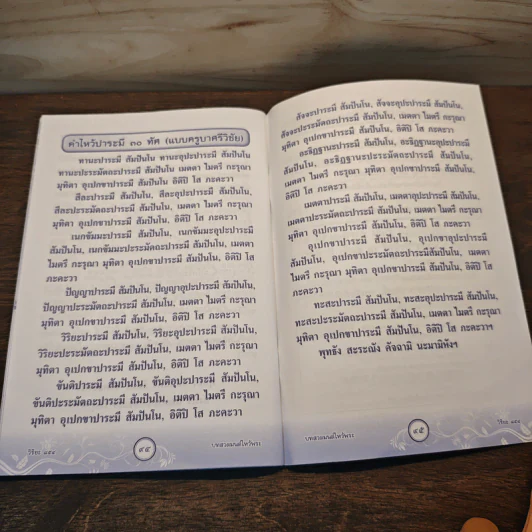 คำไหว้ปาระมี ๓๐ ทัศ (แบบครูบาศรีวิชัย)
ทานะปาระมี สัมปันโน ทานะอุปะปาระมี สัมปันโน
ทานะปะระมัตถะปาระมี สัมปันโน เมตตา ไมตรี กะรุณา
มุทิตา อุเปกขาปาระมี สัมปันโน อิติปิ โส ภะคะวา
สีละปาระมี สัมปันโน, สีละอุปะปาระมี สัมปันโน,
สีละปะระมัตถะปาระมี สัมปันโน, เมตตา ไมตรี กะรุณา
มุทิตา อุเปกขาปาระมี สัมปันโน, อิติปิ โส ภะคะวา
เนกขัมมะปาระมี สัมปันโน, เนกขัมมะอุปะปาระมี
สัมปันโน, เนกขัมมะปะระมัตถะปาระมี สัมปันโน, เมตตา
ไมตรี กะรุณา มุทิตา อุเปกขาปาระมี สัมปันโน, อิติปิ โส
ภะคะวา
ปัญญาปะระมี สัมปันโน, ปัญญาอุปะปาระมี สัมปันโน,
ปัญญาปะระมัตถะปาระมี สัมปันโน, เมตตา ไมตรี กะรุณา
มุทิตา อุเปกขาปาระมี สัมปันโน, อิติปิ โส ภะคะวา
วิริยะปาระมี สัมปันโน, วิริยะอุปะปาระมี สัมปันโน,
วิริยะปะระมัตถะปาระมี สัมปันโน, เมตตา ไมตรี กะรุณา
มุทิตา อุเปกขาปาระมี สัมปันโน, อิติปิ โส ภะคะวา
ขันติปาระมี สัมปันโน, ขันติอุปะปาระมี สัมปันโน,
ขันติปะระมัตถะปาระมี สัมปันโน, เมตตา ไมตรี กะรุณา
มุทิตา อุเปกขาปาระมี สัมปันโน, อิติปิ โส ภะคะวา
วิริยะ ๔๕๔
๙๔
บทสวดมนต์ไหว้พระ
สัจจะปาระมี สัมปันโน, สัจจะอุปะปาระมี สัมปันโน,
สัจจะปะระมัตถะปาระมี สัมปันโน, เมตตา ไมตรี กะรุณา
มุทิตา อุเปกขาปาระมี สัมปันโน, อิติปิ โส ภะคะวา
อะธิฏฐานะปาระมี สัมปันโน, อะธิฏฐานะอุปะปาระมี
สัมปันโน, อะธิฏฐานะปะระมัตถะปาระมี สัมปันโน,
เมตตา ไมตรี กะรุณา มุทิตา อุเปกขาปาระมี สัมปันโน,
อิติปิ โส ภะคะวา
เมตตาปาระมี สัมปันโน, เมตตาอุปะปาระมี สัมปันโน,
เมตตาปะระมัตถะปาระมี สัมปันโน, เมตตา ไมตรี กะรุณา
มุทิตา อุเปกขาปาระมี สัมปันโน, อิติปิ โส ภะคะวา
อุเปกขาปาระมี สัมปันโน, อุเปกขาอุปะปาระมี
สัมปันโน, อุเปกขาปะระมัตถะปาระมี สัมปันโน, เมตตา
ไมตรี กะรุณา มุทิตา อุเปกขาปาระมี สัมปันโน, อิติปิ โส
ภะคะวา
ทะสะปาระมี สัมปันโน, ทะสะอุปะปาระมี สัมปันโน,
ทะสะปะระมัตถะปาระมี สัมปันโน, เมตตา ไมตรี กะรุณา
มุทิตา อุเปกขาปาระมี สัมปันโน, อิติปิ โส ภะคะวาฯ
พุทธัง สะระณัง คัจฉามิ นะมามิหังฯ
บทสวดมนต์ไหว้พระ
๙๕
วิริยะ ๔๕๔